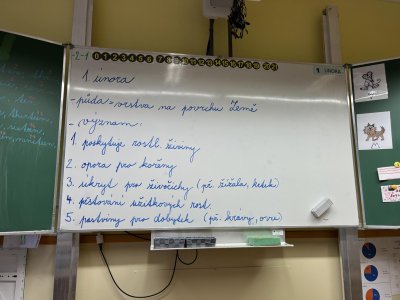 -2-1 0 1 2 3 4 5 6 7 8 9 10 11 12 13 14 15 16 17 18 19 20 21
1 ÚNORA
1. února
- půda = vrstva na povrchu Země
- význam:
1. poskytuje rostl. živiny
2. opora pro kořeny
3. úkryt pro živočichy (př. žížala, krtek)
4. pěstování užitkových rost.
5. pastviny pro dobytek (př. krávy, ovce)